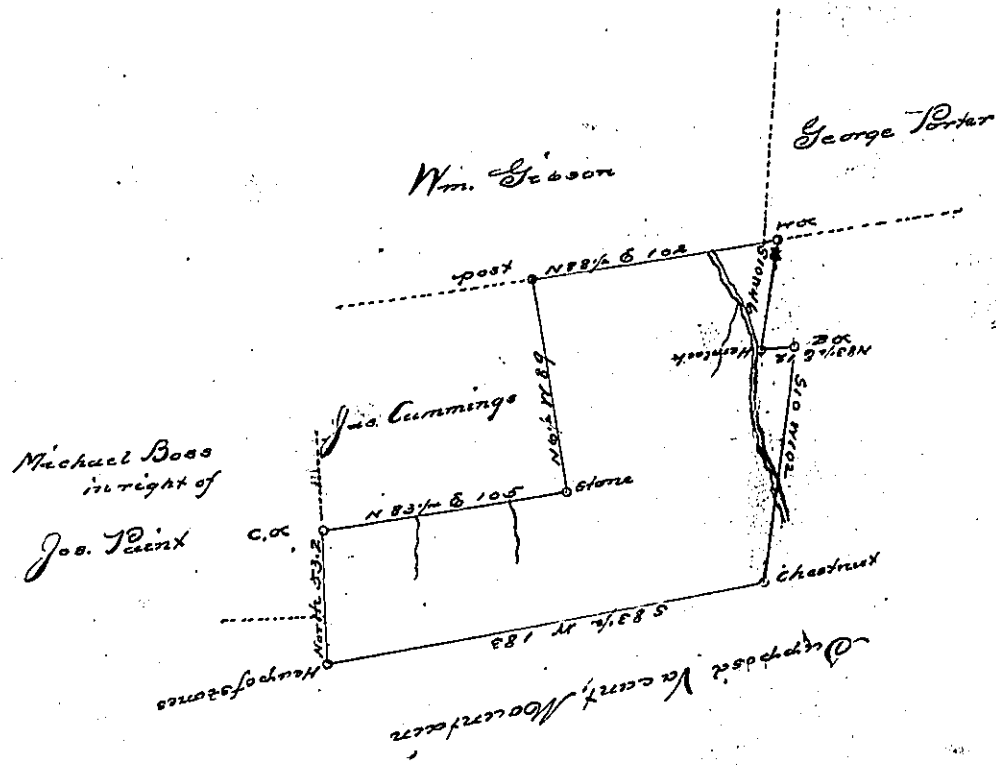 George Porter
Wm. Gibson
W.O.
post
N 88½ E 102
S10W46
Hemlock
N83½E 12
R.O.
S10 W102
N6½ W 89
Jas. Cummings
Michael Boss
in right of
Jos. Paint
C.O.
N 83½ E 105
Stone
North 53.2
Chestnut
S 83½ W 183
Heap of stones
Suppos'd Vacant, Mountain